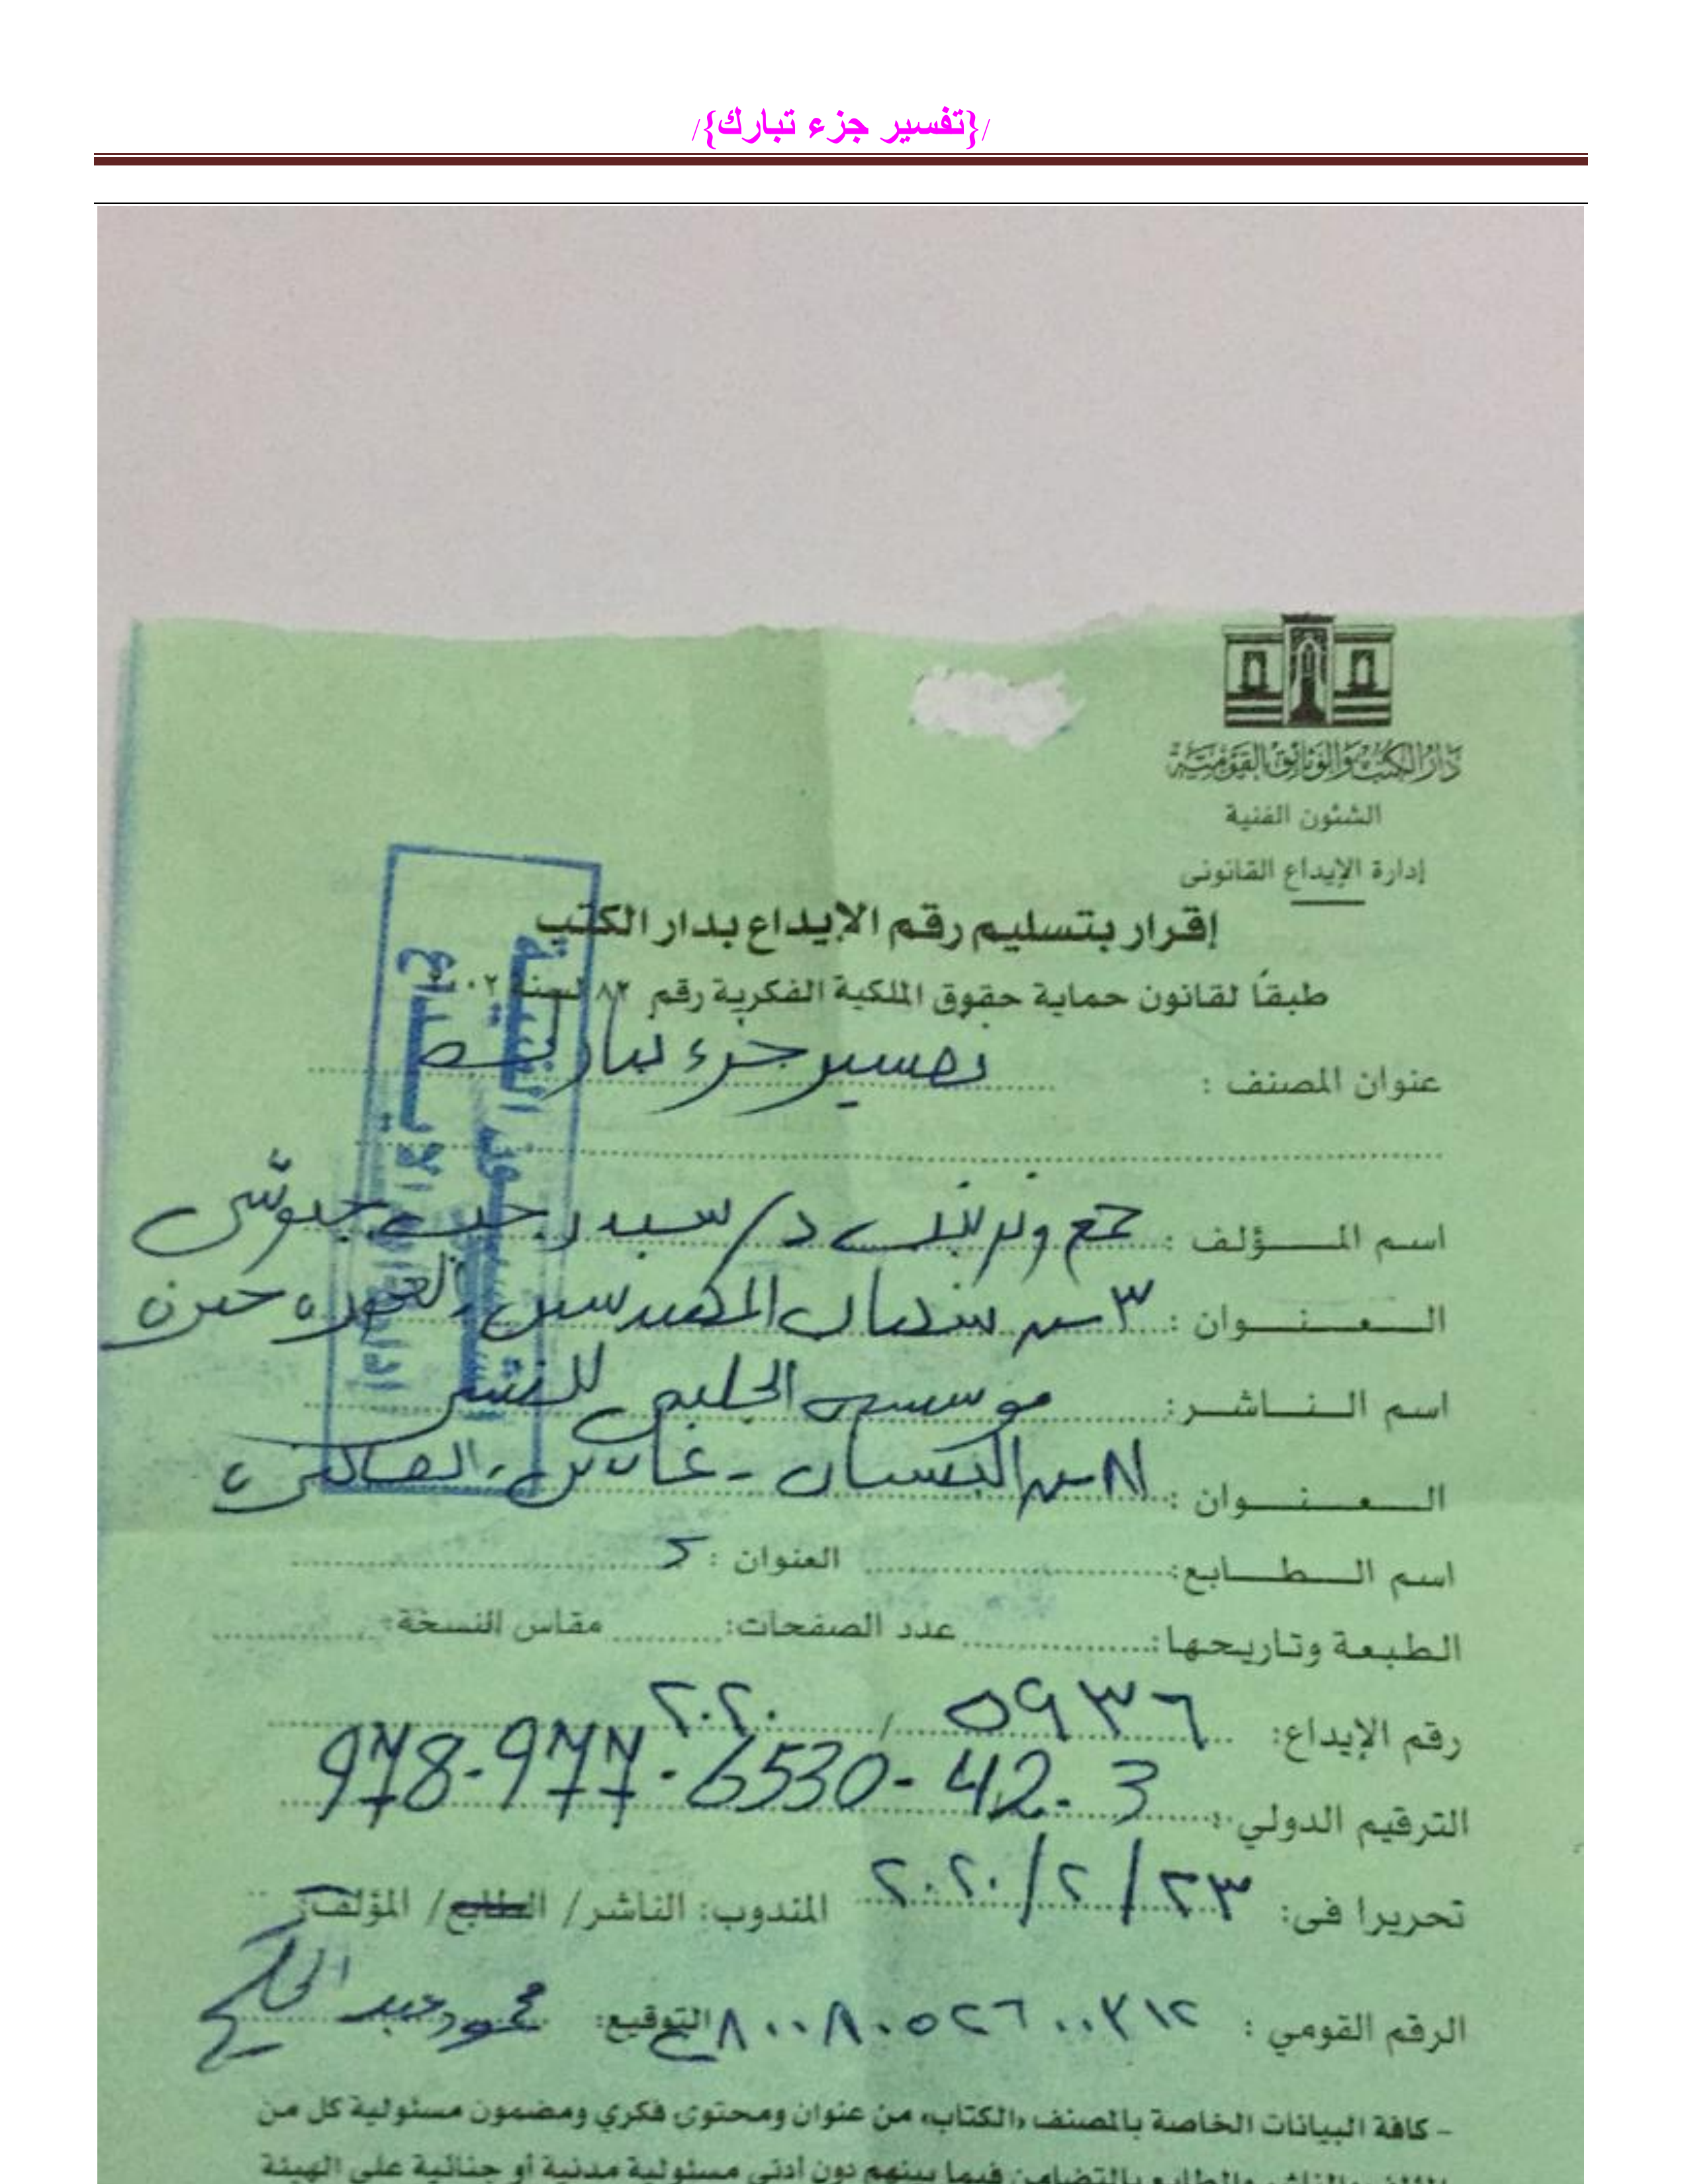 /{تفسير جزء تبارك}/
دار الكتب والوثائق القومية
الشئون الفنية
إدارة الإيداع القانونى
إقرار بتسليم رقم الإيداع بدار الكتب
طبقاً لقانون حماية حقوق الملكية الفكرية رقم ٨٢ لسنة ٢٠٠٢
عنوان المصنف : تفسير جزء تبارك
اسم المؤلف : جمع وترتيب د/ سيد رجب جيوشى
العنوان : ٣ ش المهندسين العمرانية جيزة
اسم الناشر: موسسه الحليم للنشر
العنوان : ش البستان - عابدين، القاهرة
اسم الطابع: العنوان :
الطبعة وتاريحها: عدد الصفحات: مقاس النسخة:
رقم الإيداع: ٥٩٣٦ / ٢٠٢٠
الترقيم الدولي : 978-977-6530-42-3
تحريرا فى: ٢٣/٢/٢٠٢٠ المندوب: الناشر/ الطابع/ المؤلف:
الرقم القومي : التوقيع: محمود عبد الحليم
- كافة البيانات الخاصة بالمصنف «الكتاب» من عنوان ومحتوى فكري ومضمون مسئولية كل من
المؤلف والناشر والطابع بالتضامن فيما بينهم دون أدنى مسئولية مدنية أو جنائية على الهيئة